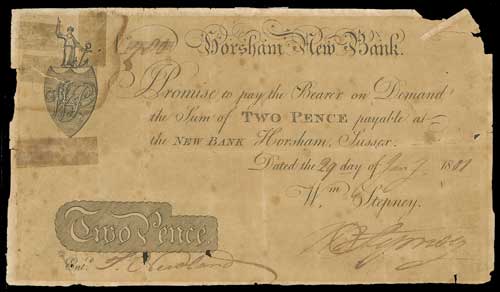 Horsham New Bank.
Promise to pay the Bearer on Demand
the Sum of TWO PENCE payable at
the NEW BANK Horsham, Sussex.
Dated the 29 day of Jan 1801
Wm Stepney.
Two Pence.
Entd.